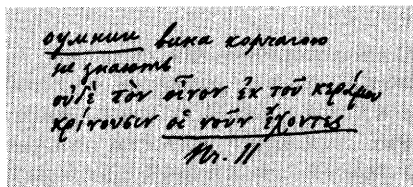 оумнии вина корчагою
не знають
οὐδὲ τὸν οἶνον ἐκ τοῦ κεράμου
κρίνουσιν οἱ νοῦν ἔχοντες
Nr. 11